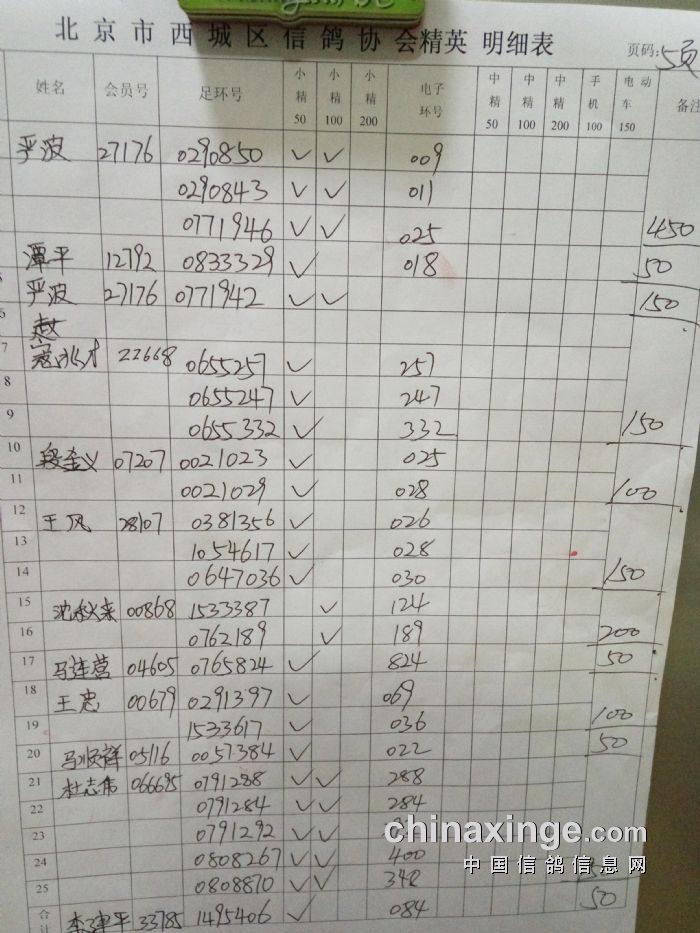 北京市西城区信鸽协会精英 明细表
页码:5页
姓名 会员号 足环号 小精50 小精100 小精200 电子环号 中精50 中精100 中精200 手机100 电动车150 备注
严波 27176 0290850 ✓ ✓ 009
0290843 ✓ ✓ 011
0771946 ✓ ✓ 025 450
潭平 12792 0833329 ✓ 018 50
严波 27176 0771942 ✓ ✓ 150
7 22668 0655257 ✓ 257
8 0655247 ✓ 247
9 0655332 ✓ 332 150
10 段奎义 07207 0021023 ✓ 025
11 0021029 ✓ 028 100
12 王凤 28107 0381356 ✓ 026
13 1054617 ✓ 028
14 0647036 ✓ 030 150
15 沈秋来 00868 1533387 ✓ 124
16 0762189 ✓ 189 200
17 马连营 04605 0765824 ✓ 824 50
18 王忠 00679 0291397 ✓ 069
19 1533617 ✓ 036 100
20 马顺祥 05116 0057384 ✓ 022 50
21 杜志伟 066695 0791288 ✓ ✓ 288
22 0791284 ✓ ✓ 284
23 0791292 ✓ ✓
24 0808267 ✓ ✓ 400
25 0808870 ✓ ✓ 348
合计 李建平 33785 1495406 ✓ 084 50
chinaxinge.com
中国信鸽信息网